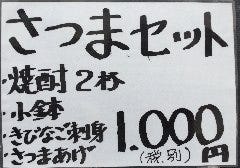 さつまセット
・焼酎2杯
・小鉢
・きびなご刺身
・さつまあげ
1.000円
(税別)